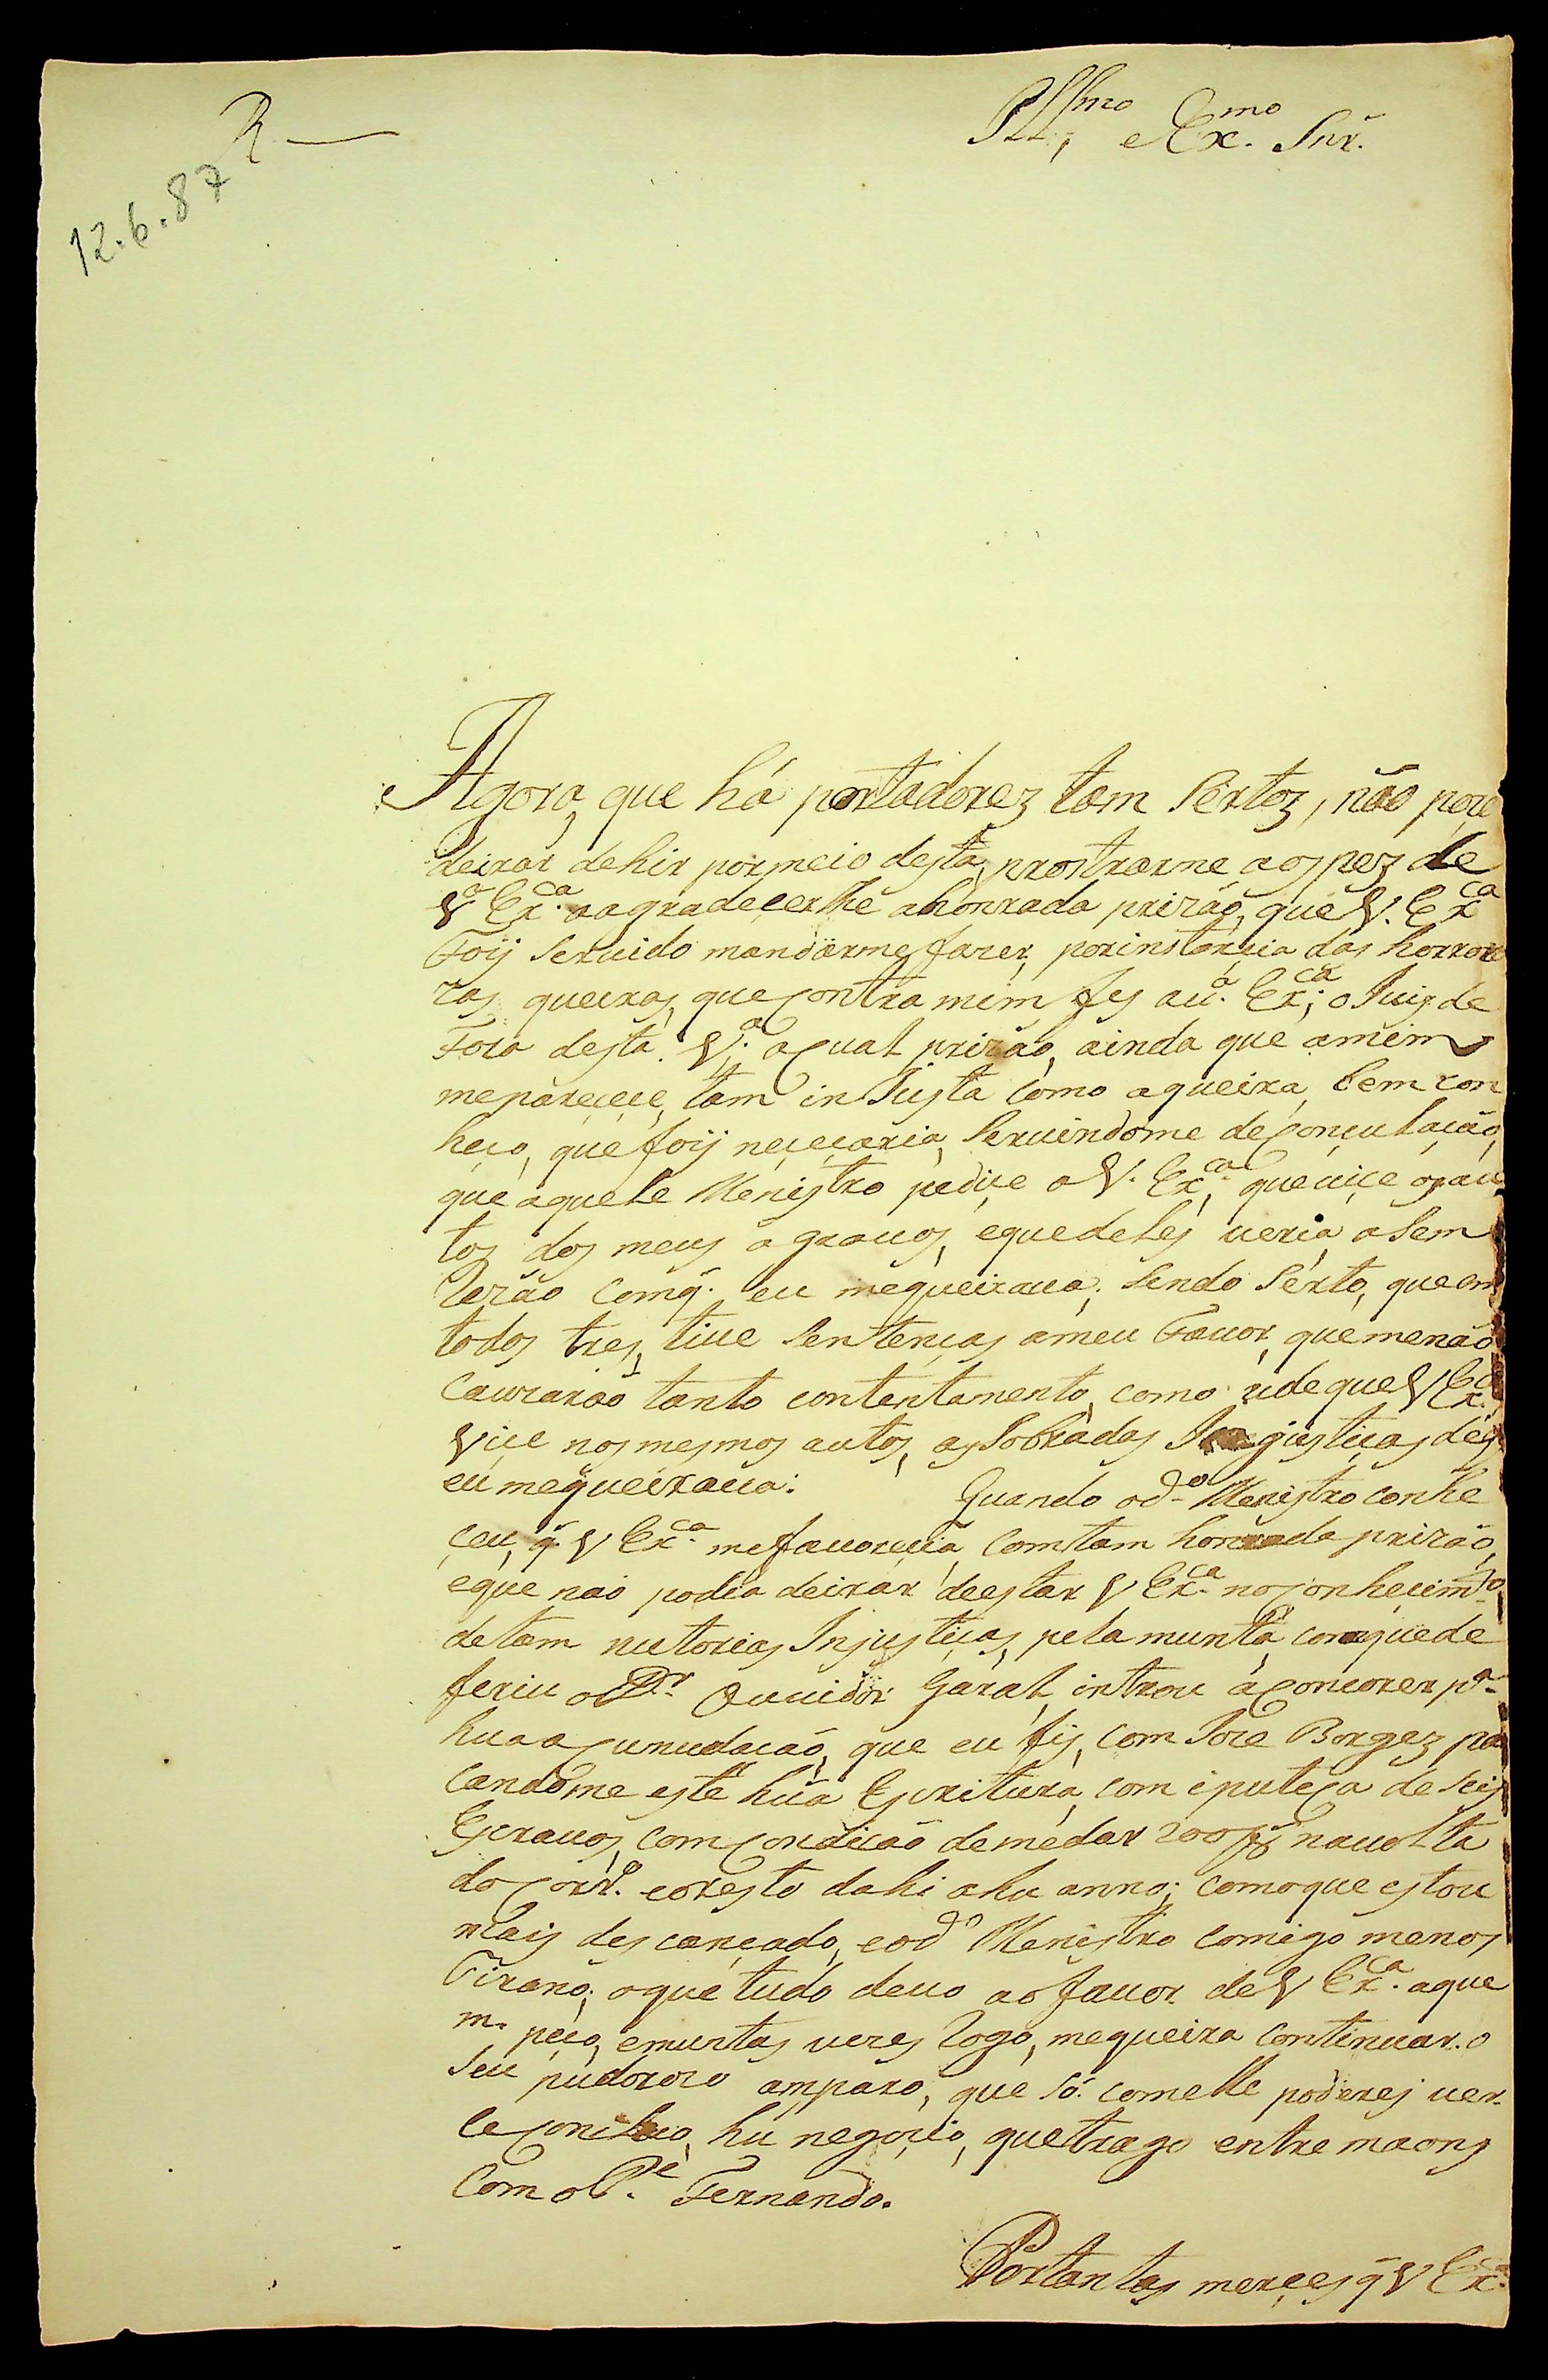 R
12.6.87
Ill.mo e Ex.mo Snr.
Agora, que há portadorez tam Sertoz, não poço
deixar de hir por meio desta, prostrarme aos pez de
V.ª Ex.ca a agradecerlhe a honrada prizáo, que V. Ex.ca
Foij Seruido mandarme fazer, por instancia das horroro
zas queixas, que contra mim fes a u.ª Ex.ca; o Juis de
Fora desta V.ª; a qual prizáo, ainda que a mim
me pareçeçe, tam in Justa Como a queixa, bem con
heço, que foij neçeçaria, Seruindome de conçulação,
que aquele Menistro pediçe a V. Ex.ca, que uiçe os au
tos dos meus agrauos, e que deles ueria a Sem
Rezão Comq̃. eu me queixaua; Sendo Serto, que em
todos tres, tiue Sentenças a meu Fauor, que me não
Cauzarão tanto contentamento, como o de que V Ex.ca
Viçe nos mesmos autos, as Sobradas Ingustiças de q̃
eu me queixaua: Quando o d.o Menistro conhe
çeu, q̃. V Ex.ca me fauoreçia, Com tam honrada prizão,
e que não podia deixar de estar V Ex.ca no conhecim.to
de tam nutorias Injustiças, pela munta, com que de
feriu o D.r Ouuidor Garal, introu a concorer p.ª
hua acumudacaó, que eu fis, com Joze Borgez, pa
çandome este huã Escritura, com iputeca de Seis
Escrauos, com condicão de me dar 200$ na uolta
do Corr.e e o resto dahi a hu anno; com o que estou
mais descançado, e o d.o Menistro Comigo menos
Tirano; o que tudo deuo ao fauor de V Ex.ca. a que
m. peço, e muntas uezes Rogo, me queira Continuar. o
Seu pudorozo amparo, que Só. com elle poderej uer.
Se concluo, hu negoçio, que trago entre maons
Com o P.e Fernando.
Por tantas merçes q̃ V Ex.ca